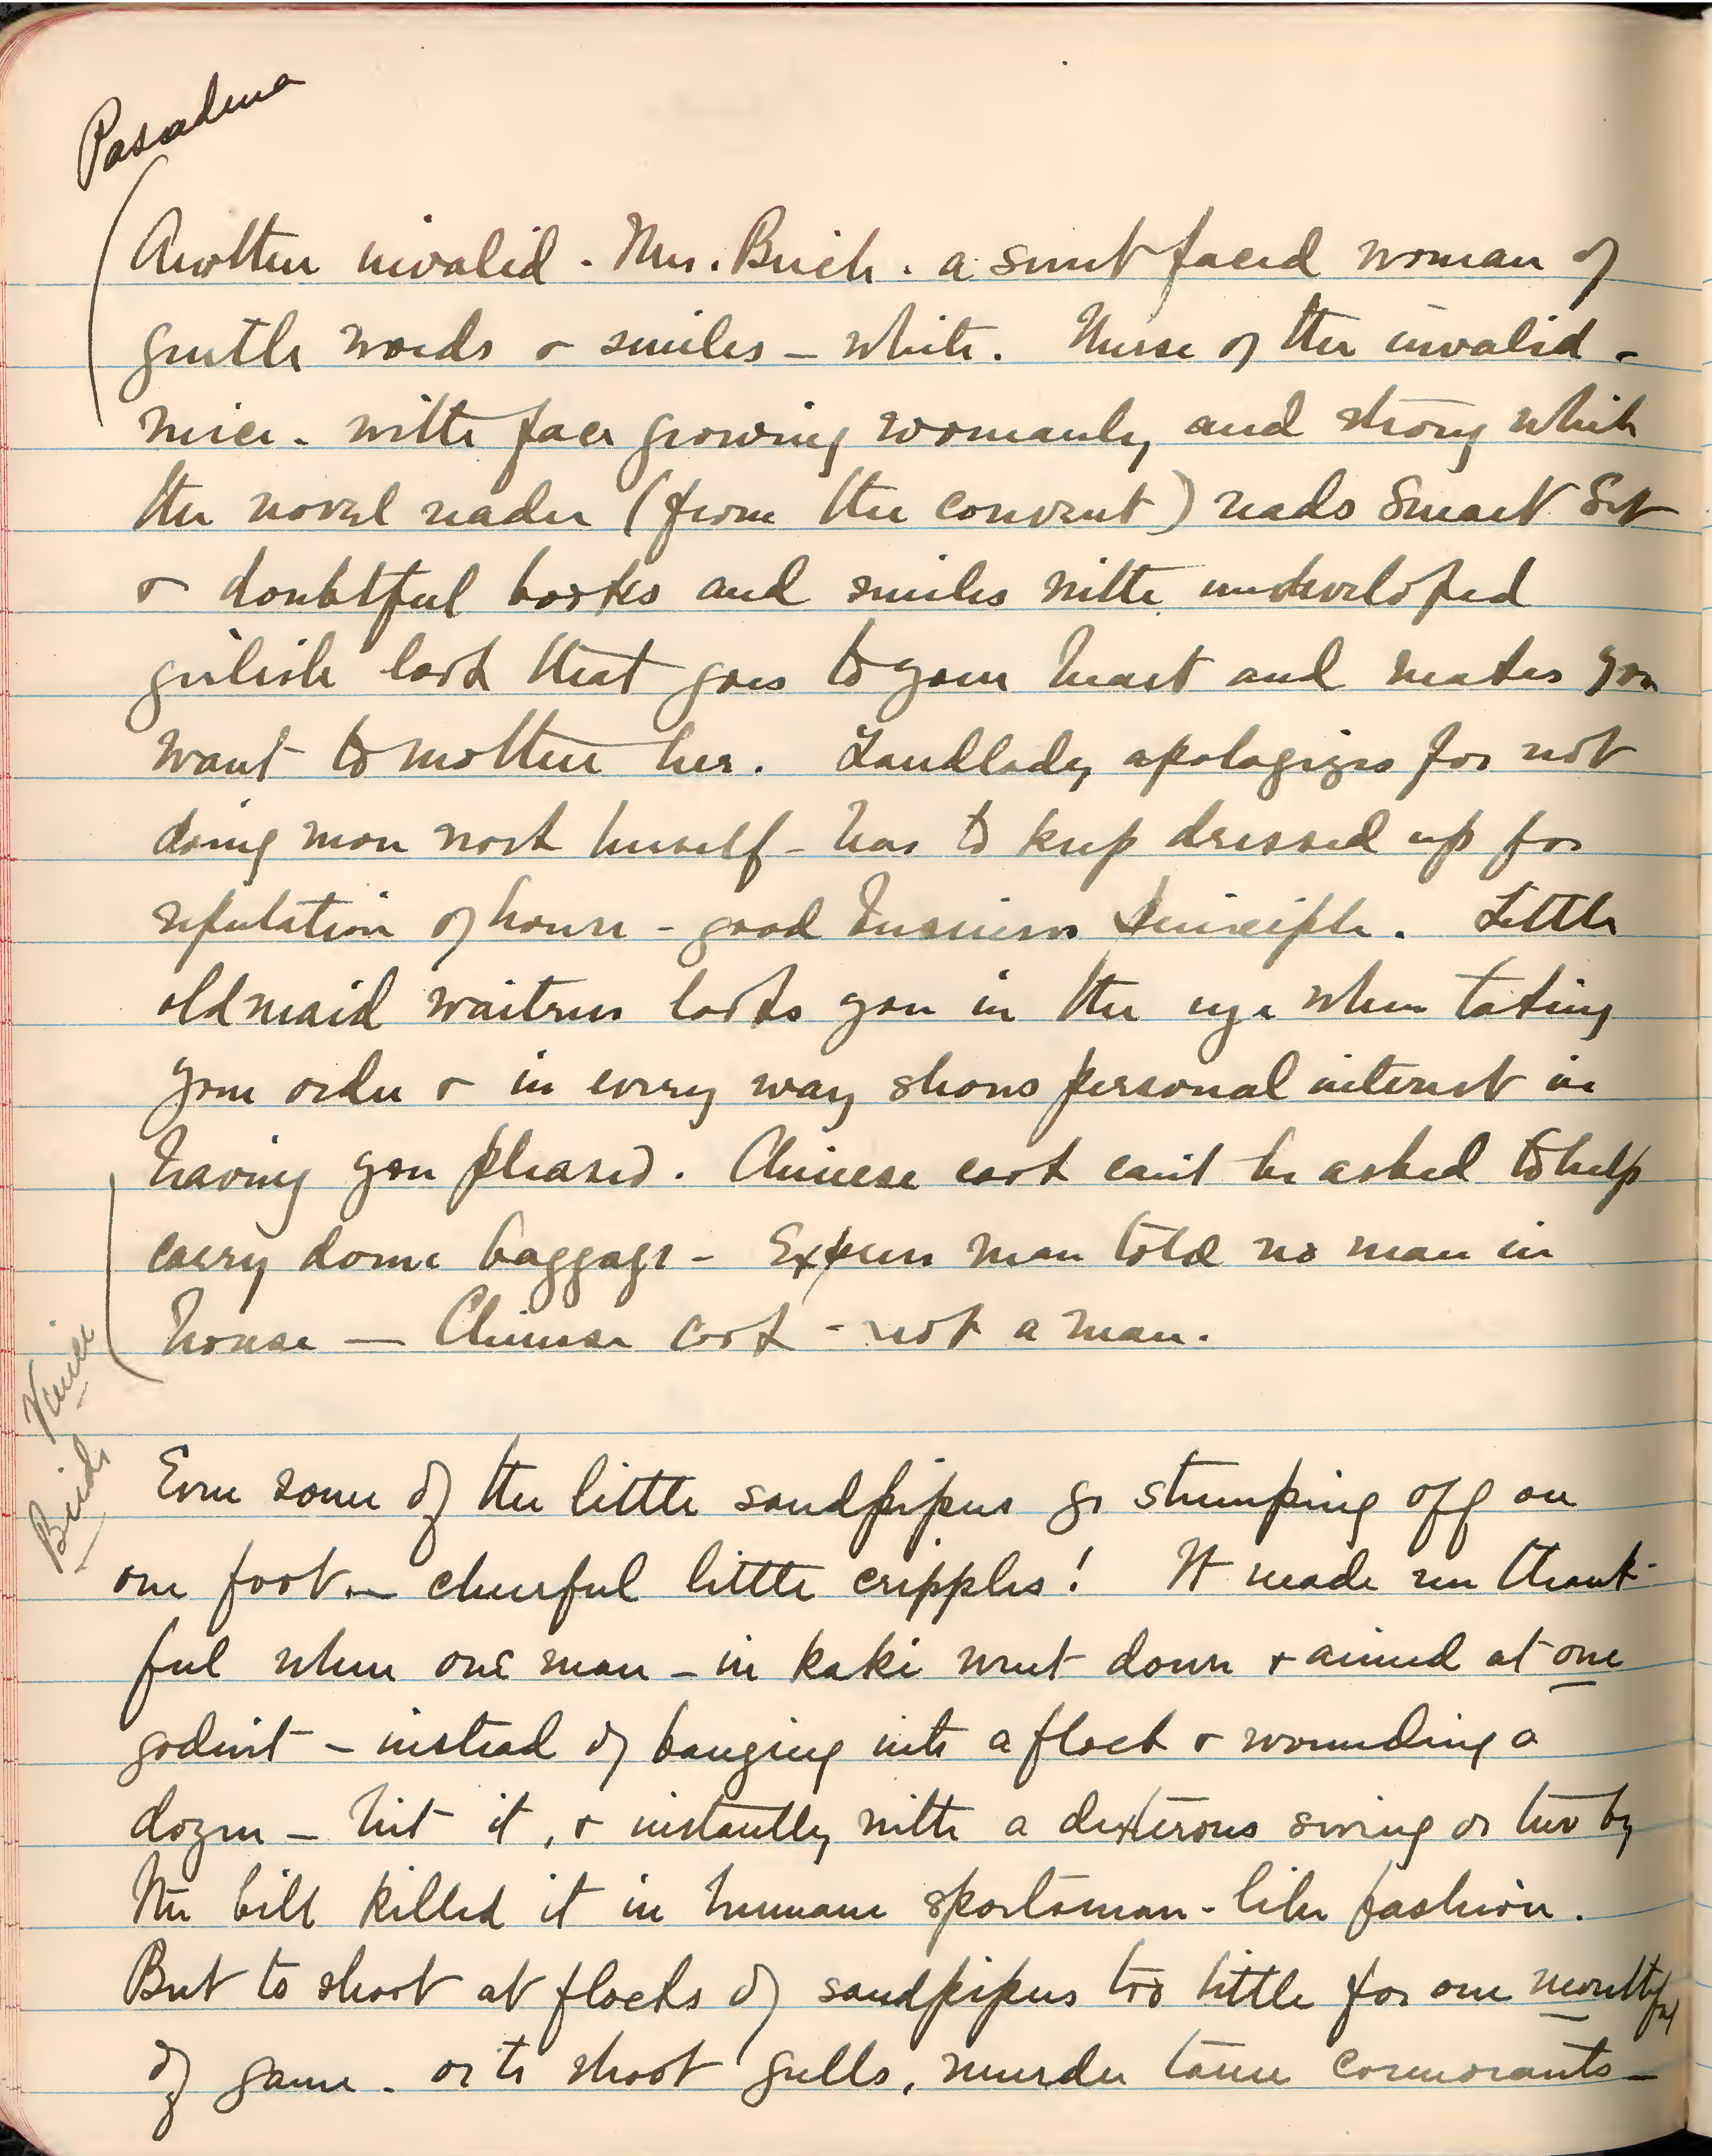 Pasadena
Another invalid - Mrs. Birch. a sweet faced woman of
gentle words & smiles - white. Nurse of the invalid -
nice - with face growing womanly and strong while
the novel reader (from the convent) reads Smart Set
& doubtful books and smiles with undeveloped
girlish look that goes to your heart and makes you
want to mother her. Landlady apologizes for not
doing more work herself - has to keep dressed up for
reputation of house - good business principle. Little
old maid waitress looks you in the eye when taking
your order & in every way shows personal interest in
having you pleased. Chinese cook can't be asked to help
carry down baggage - Express man told no man in
house — Chinese cook - not a man.
Venice
Birds
Even some of the little sandpipers go stumping off on
one foot - cheerful little cripples! It made me thank-
ful when one man - in kaki went down & aimed at one
godwit - instead of banging into a flock & wounding a
dozen - hit it, & instantly with a dexterous swing or two by
the bill killed it in humane sportsman-like fashion.
But to shoot at flocks of sandpipers too little for one mouthful
of game - or to shoot gulls, murder tame cormorants -